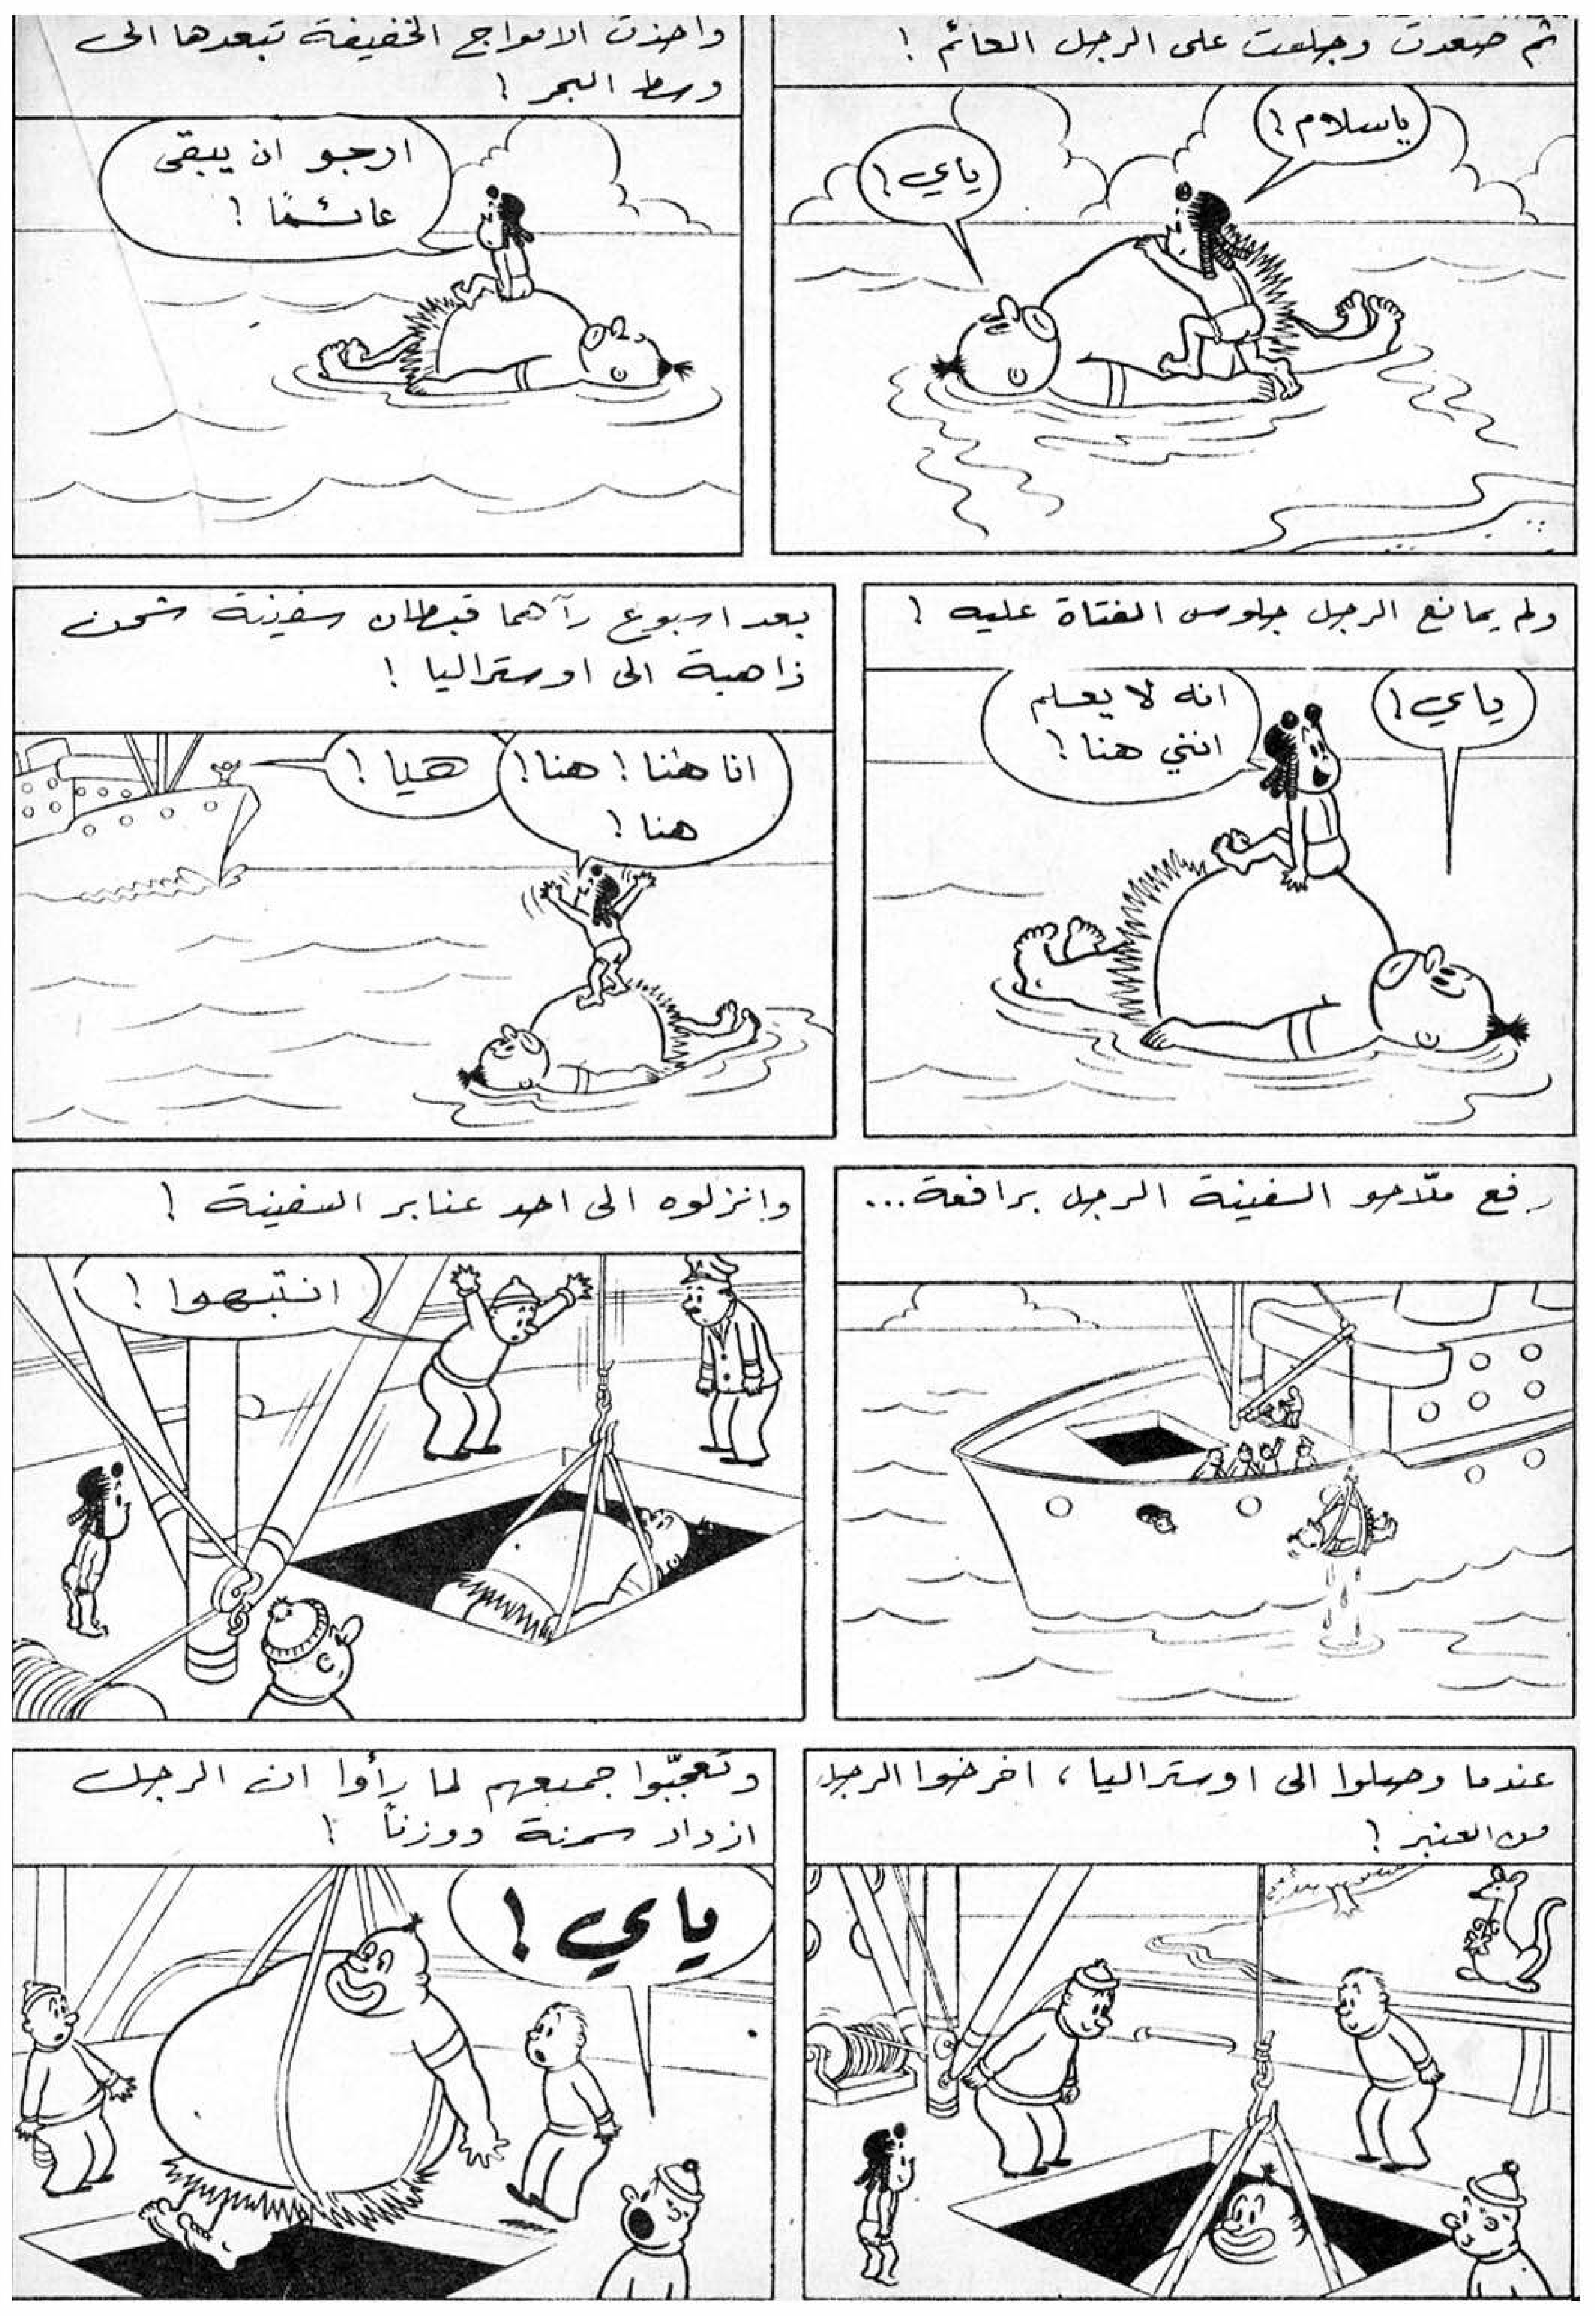 ثم صعدت وجلست على الرجل العائم !
ياسلام !
ياي !
واخذت الامواج الخفيفة تبعدها الى
وسط البحر !
ارجو ان يبقى
عائمًا !
ولم يمانع الرجل جلوس الفتاة عليه !
ياي !
انه لا يعلم
انني هنا !
بعد اسبوع رآهما قبطان سفينة شحن
ذاهبة الى اوستراليا !
انا هنا ! هنا !
هنا !
هيا !
رفع ملّاحو السفينة الرجل برافعة...
وانزلوه الى احد عنابر السفينة !
انتبهوا !
عندما وصلوا الى اوستراليا، اخرجوا الرجل
من العنبر !
وتعجّبوا جميعهم لما رأوا ان الرجل
ازداد سمنة ووزناً !
ياي !